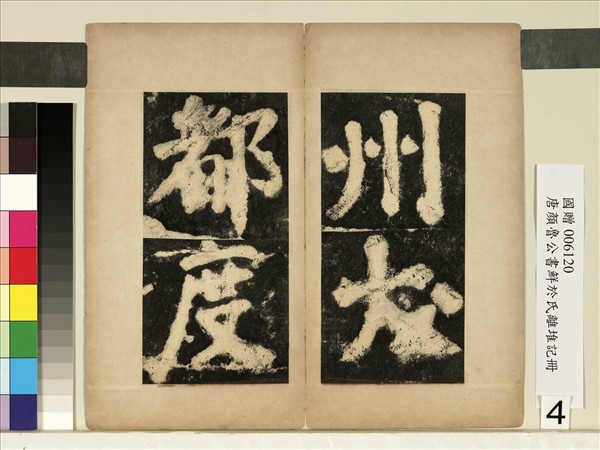 州
都
度
國贈 006120
唐顏魯公書鮮於氏離堆記冊
4